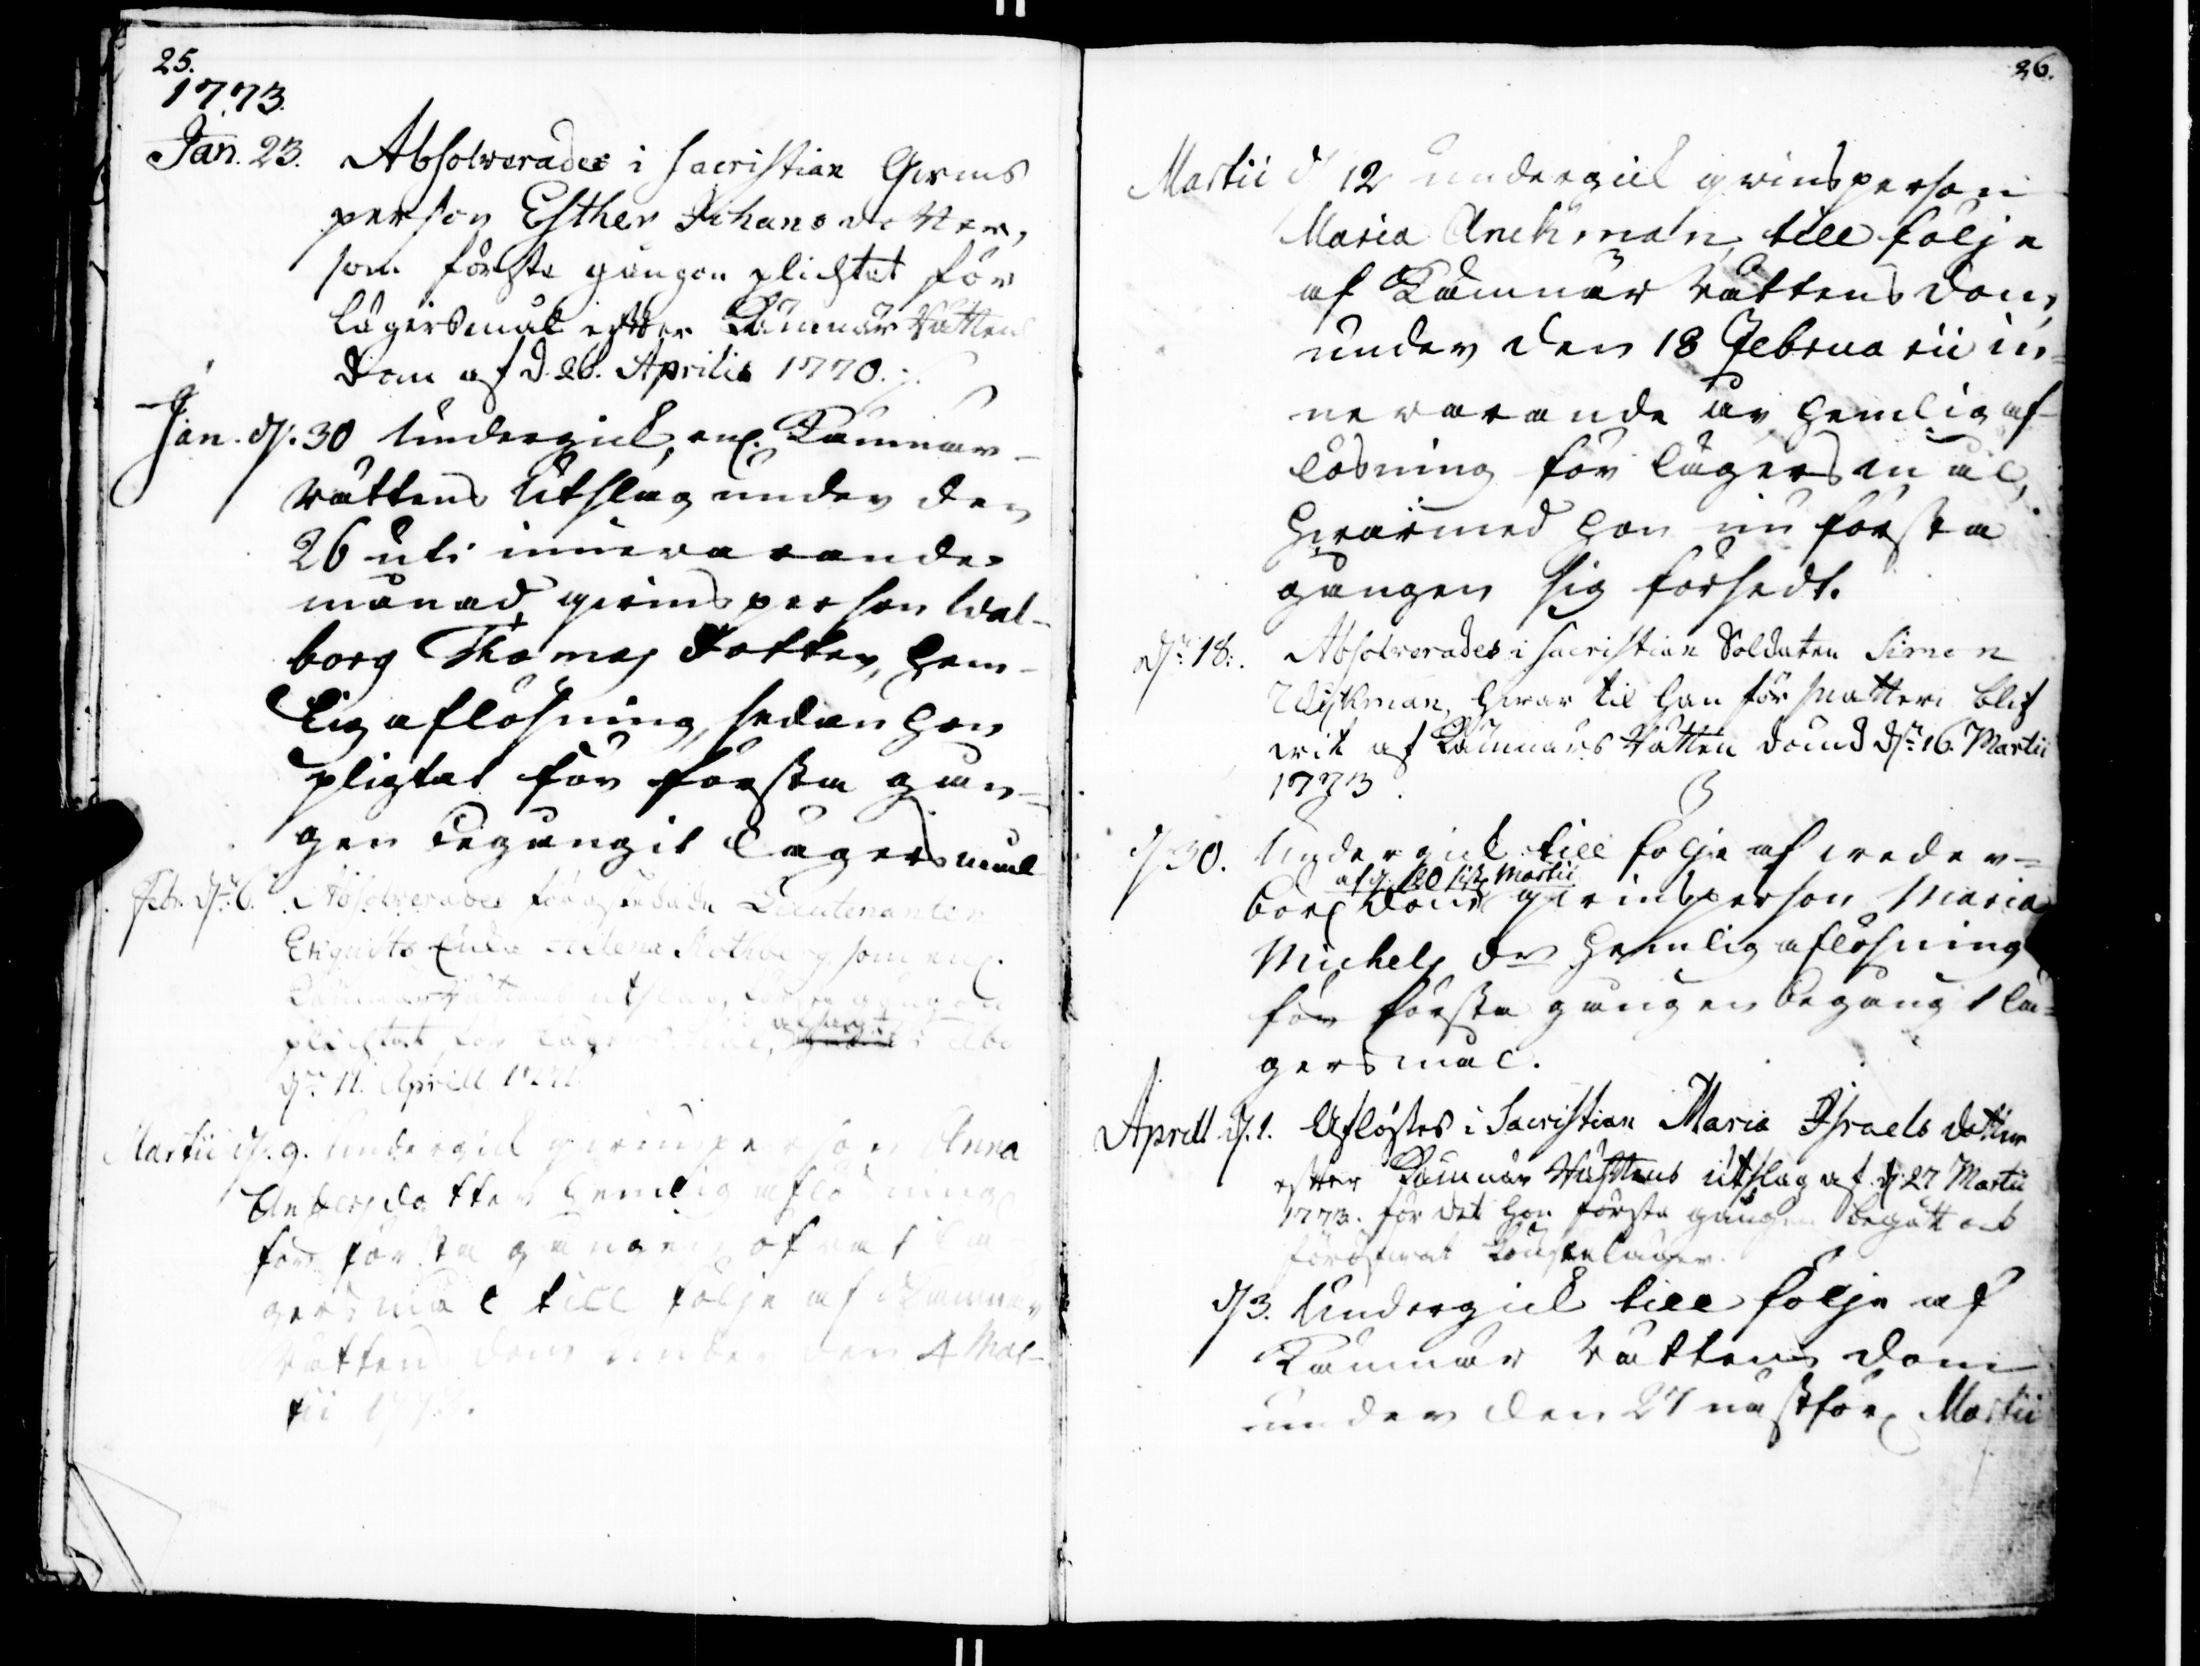 25.
1773.
Jan. 23. Absolverades i Sacristian Qwins
person Esther Johans dotter,
som första gången plichtat för
Lägersmål efter Kämnärs Rättens
Dom af d. 26. Aprilis 1770.
Jan. d. 30 Undergick, enl. Kämnärs-
Rättens Utslag under den
26 uti innevarande
månad, qvinsperson Wal-
borg Thomas Dotter, hem-
lig aflösning, sedan hon
pligtat för första gån-
gen begångit Lägersmål
Febr. d. 6. Absolverades Lieutenanten
Enda Helena Rothberg som enl.
Kämnärs Rättens utslag, gången
plichtat för Lägersmål, i Åbo
d. 11. Aprill
Martii d. 9. Undergick qvinsperson Anna
Anders dotter hemlig aflösning
för första gången öfvat Lä-
gersmål till följe af Kämnärs
Rättens dom under den 4 Mar-
tii 1773.
26.
Martii d. 12 undergick qvinsperson
Maria till följe
af Kämnärs Rättens dom,
under den 18 Februarii in-
nevarande år, hemlig af-
lösning för lägersmål,
hvarmed hon nu första
gången sig försedt.
d. 18. Absolverades i Sacristian Soldaten Simon
hvar til han för snatteri blif
wit af Kämnärs Rätten dömd d. 16. Martii
1773.
d. 30. Undergick till följe af weder-
af d. 20 sistl. Martii
börl. dom qvinsperson Maria
Michels dr hemlig aflösning
för första gången begångit Lä-
gersmål.
Aprill d. 1. Aflöstes i Sacristian Maria Israels dotter
efter Kämnärs Rättens utslag af d. 27 Martii
1773. för det hon första gången begått och
föröfwat Lönskeläger.
d. 3. Undergick till följe af
Kämnärs Rättens dom
under den 27 nästför. Martii